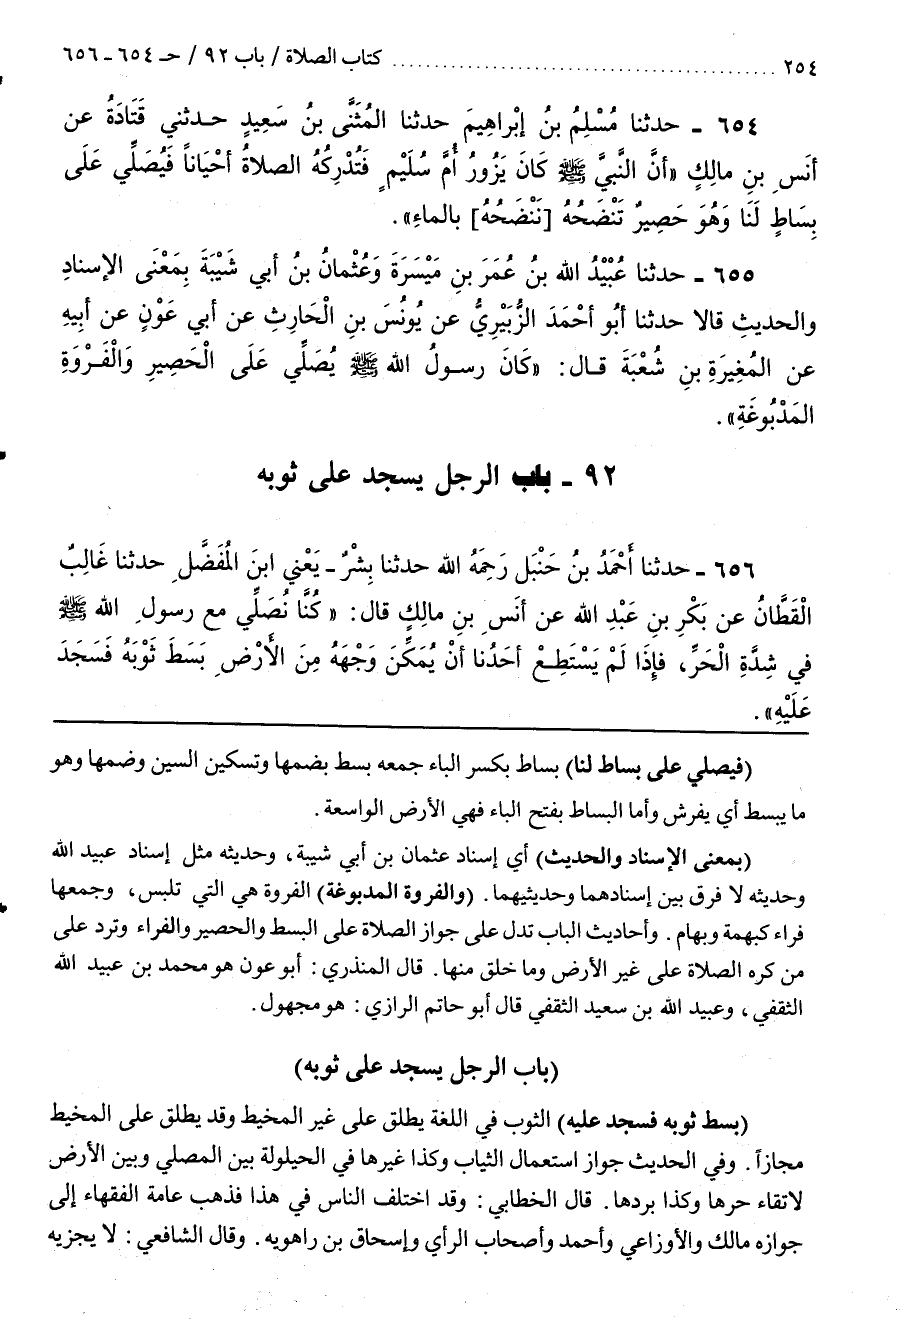 ٢٥٤ ................................................ كتاب الصلاة / باب ٩٢ / حـ ٦٥٤ ـ ٦٥٦
٦٥٤ ـ حدثنا مُسْلِمُ بنُ إبْراهِيمَ حدثنا المُثَنَّى بنُ سَعِيدٍ حـدثني قَتَادَةُ عن
أنَسِ بنِ مالِكٍ «أنَّ النَّبيَّ ﷺ كَانَ يَزُورُ أُمَّ سُلَيْمٍ فَتُدْرِكُهُ الصلاةُ أحْيَاناً فَيُصَلِّي عَلَى
بِسَاطٍ لَنَا وَهُوَ حَصِيرٌ تَنْضَحُهُ [نَنْضَحُهُ] بالماءِ».
٦٥٥ ـ حدثنا عُبَيْدُ الله بنُ عُمَرَ بنِ مَيْسَرَةَ وَعُثْمانُ بنُ أبي شَيْبَةَ بِمَعْنَى الإسنادِ
والحديثِ قالا حدثنا أبُو أحْمَدَ الزُّبَيْرِيُّ عن يُونُسَ بنِ الْحَارِثِ عن أبي عَوْنٍ عن أبِيهِ
عن المُغِيرَةِ بنِ شُعْبَةَ قـال: «كَانَ رسـولُ الله ﷺ يُصَلِّي عَلَى الْحَصِيرِ وَالْفَرْوَةِ
المَدْبُوغَةِ».
٩٢ ـ باب الرجل يسجد على ثوبه
٦٥٦ ـ حدثنا أَحْمَدُ بنُ حَنْبَلٍ رَحِمَهُ الله حدثنا بِشْرٌ ـ يَعْني ابنَ المُفَضَّلِ حدثنا غَالِبٌ
الْقَطَّانُ عن بَكْرِ بنِ عَبْدِ الله عن أنَسِ بنِ مالِكٍ قال: «كُنَّا نُصَلِّي مع رسولِ الله ﷺ
في شِدَّةِ الْحَرِّ، فإِذَا لَمْ يَسْتَطِعْ أحَدُنا أنْ يُمَكِّنَ وَجْهَهُ مِنَ الأَرْضِ بَسَطَ ثَوْبَهُ فَسَجَدَ
عَلَيْهِ».
(فيصلي على بساط لنا) بساط بكسر الباء جمعه بسط بضمها وتسكين السين وضمها وهو
ما يبسط أي يفرش وأما البساط بفتح الباء فهي الأرض الواسعة.
(بمعنى الإسناد والحديث) أي إسناد عثمان بن أبي شيبة، وحديثه مثل إسناد عبيد الله
وحديثه لا فرق بين إسنادهما وحديثيهما. (والفروة المدبوغة) الفروة هي التي تلبس، وجمعها
فراء كبهمة وبهام. وأحاديث الباب تدل على جواز الصلاة على البسط والحصير والفراء وترد على
من كره الصلاة على غير الأرض وما خلق منها. قال المنذري: أبو عون هو محمد بن عبيد الله
الثقفي، وعبيد الله بن سعيد الثقفي قال أبو حاتم الرازي: هو مجهول.
(باب الرجل يسجد على ثوبه)
(بسط ثوبه فسجد عليه) الثوب في اللغة يطلق على غير المخيط وقد يطلق على المخيط
مجازاً. وفي الحديث جواز استعمال الثياب وكذا غيرها في الحيلولة بين المصلي وبين الأرض
لاتقاء حرها وكذا بردها. قال الخطابي: وقد اختلف الناس في هذا فذهب عامة الفقهاء إلى
جوازه مالك والأوزاعي وأحمد وأصحاب الرأي وإسحاق بن راهويه. وقال الشافعي: لا يجزيه